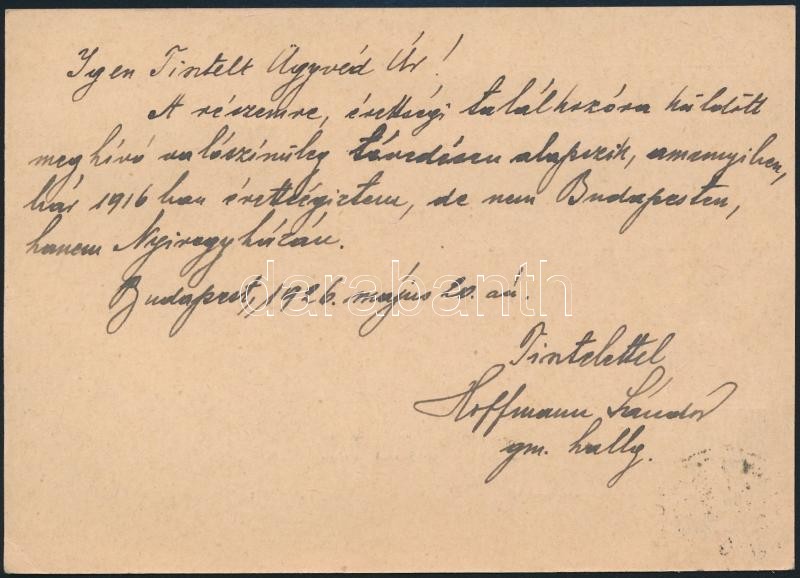 Igen Tisztelt Ügyvéd Úr!
A részemre, érettségi találkozóra küldött
meghívó valószínűleg tévedésen alapszik, amennyiben,
bár 1916 ban érettségiztem, de nem Budapesten,
hanem Nyiregyházán.
Budapest, 1926. május 20. án.
darabanth
Tisztelettel
Hoffmann Sándor
gm. hallg.